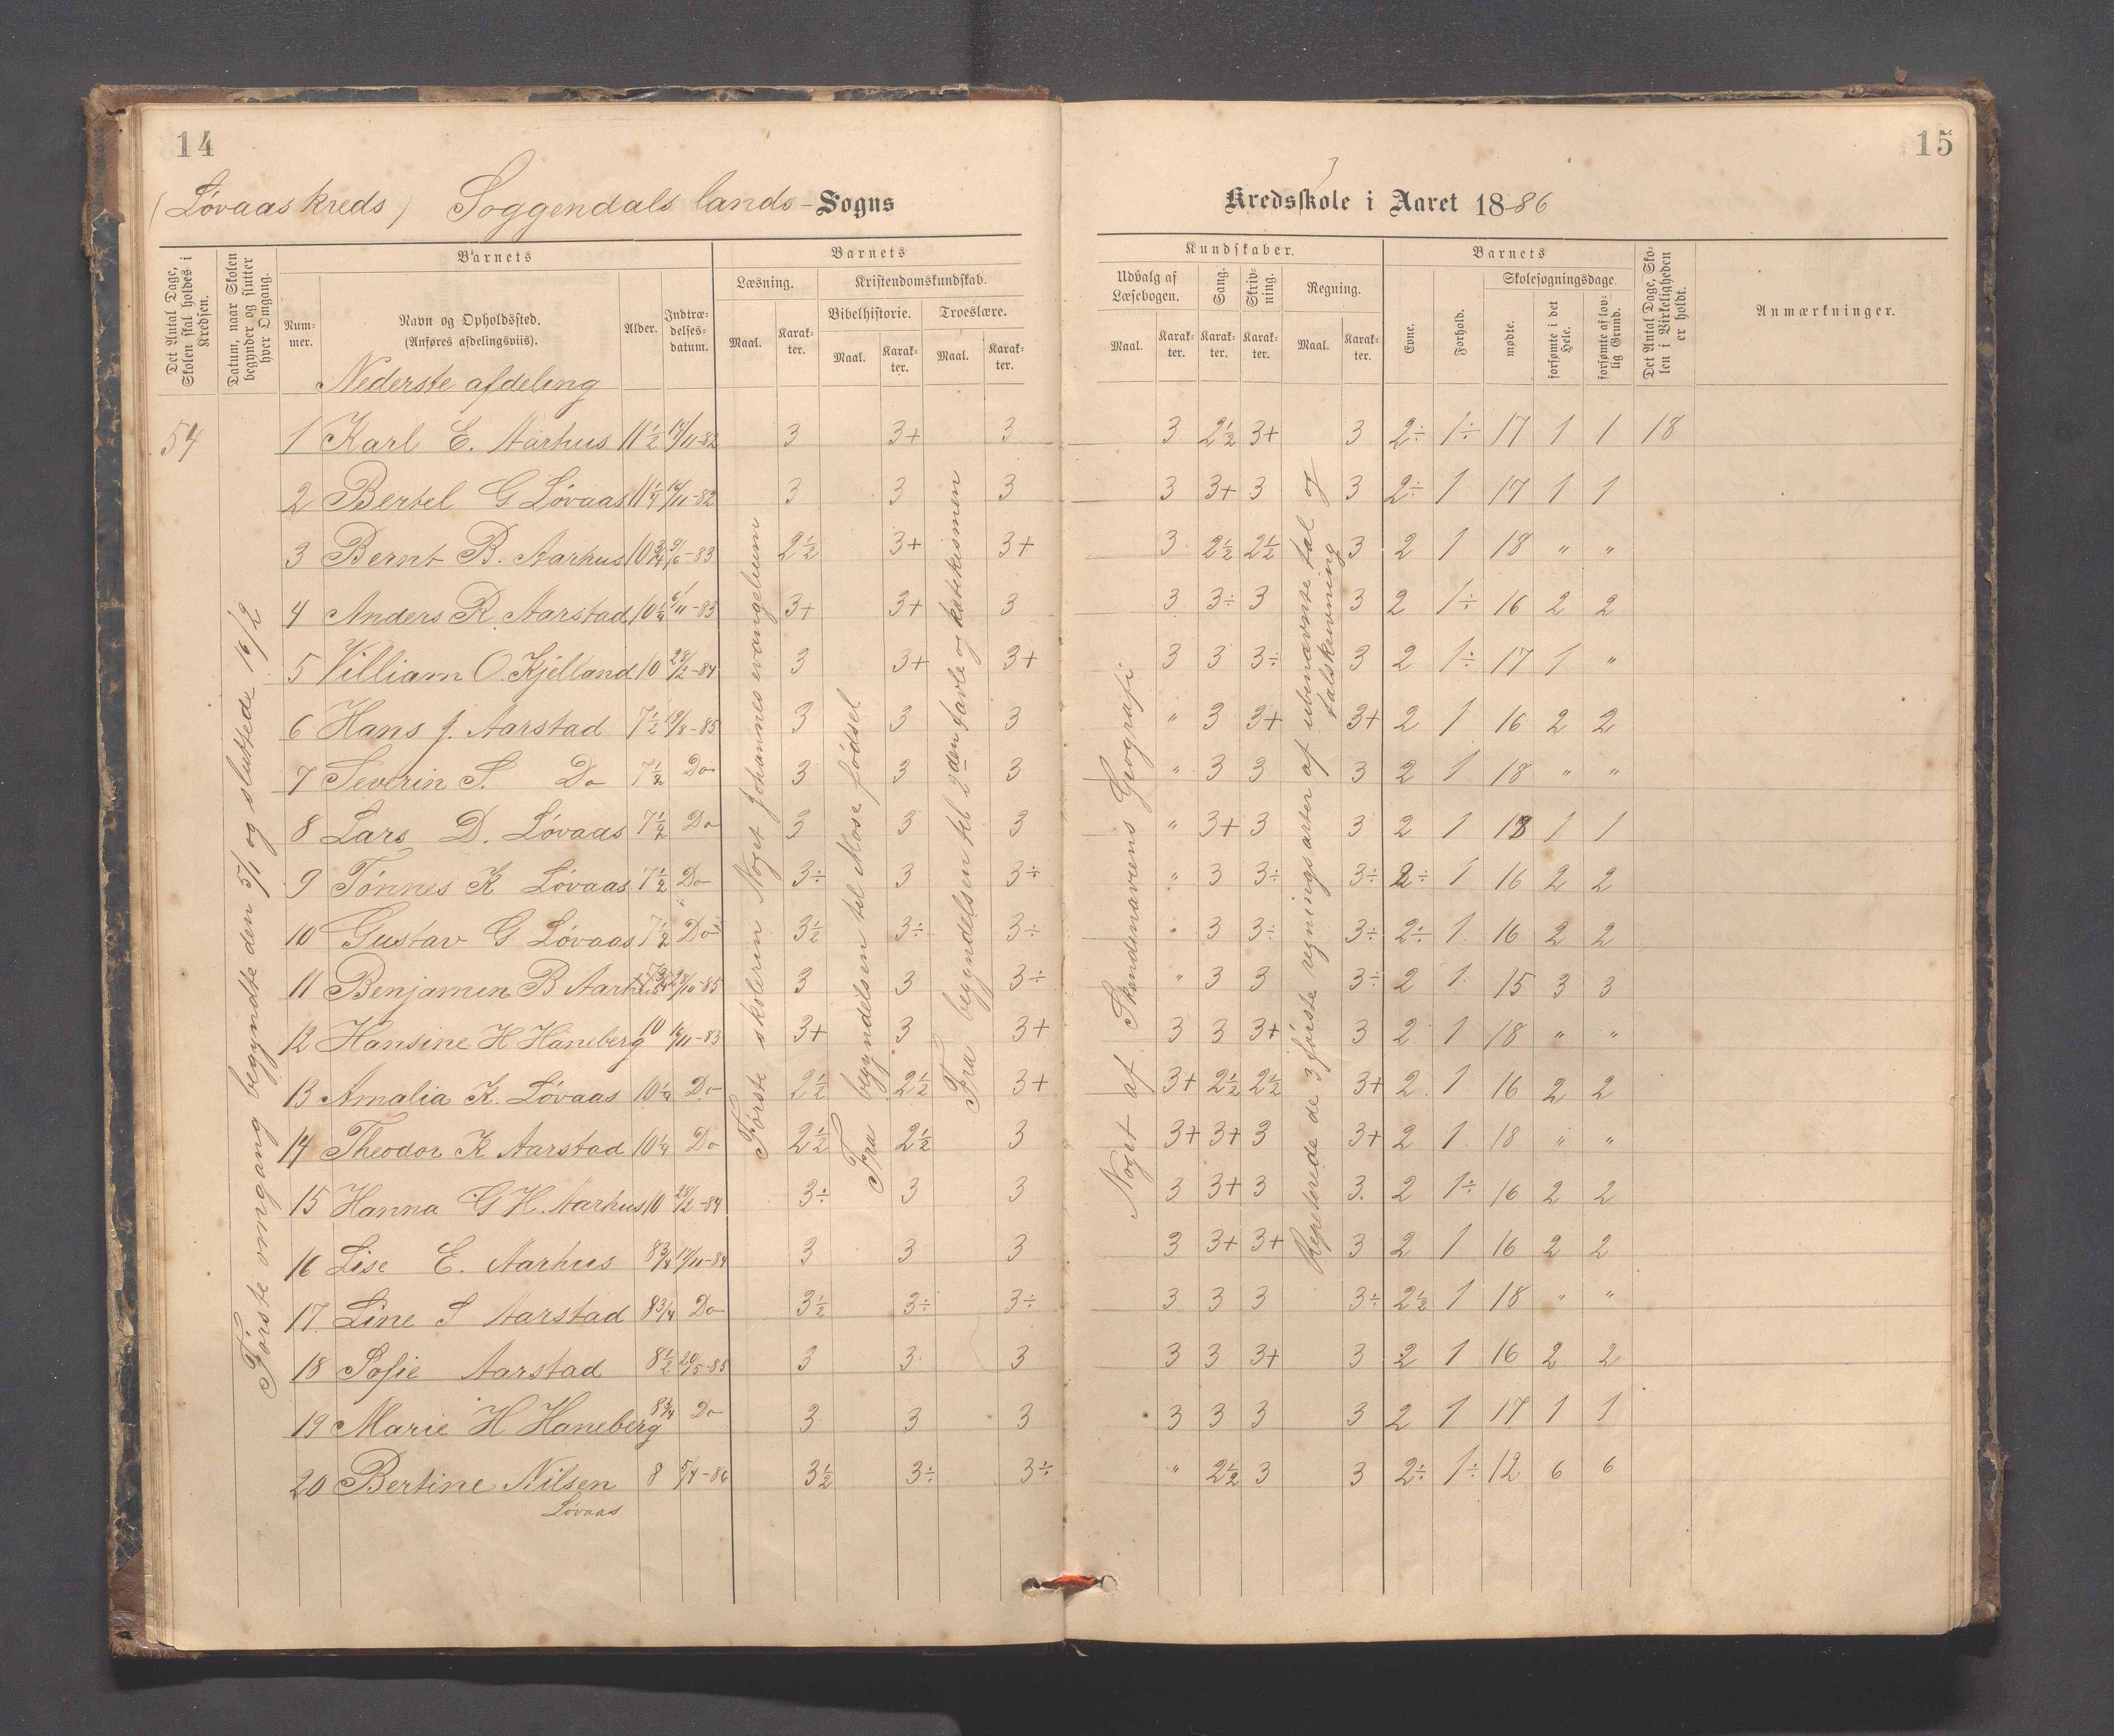 14
15
(Løvaas kreds) Soggendals lands-Sogns
Kredsskole i Aaret 1886
Det Antal Dage, Skolen skal holdes i Kredsen.
Datum, naar Skolen begynder og slutter hver Omgang.
Barnets
Nummer.
Navn og Opholdssted.
(Anføres afdelingsviis).
Alder.
Indtrædelsesdatum.
Barnets
Læsning.
Kristendomskundskab.
Bibelhistorie.
Troeslære.
Maal. Karakter. Maal. Karakter. Maal. Karakter.
Kundskaber.
Udvalg af Læsebogen.
Sang.
Skrivning.
Regning.
Maal. Karakter. Karakter. Karakter. Maal. Karakter.
Barnets
Evne.
Forhold.
Skolesøgningsdage
mødte.
forsømte i det Hele.
forsømte af lovlig Grund.
Det Antal Dage, Skolen i Virkeligheden er holdt.
Anmærkninger.
Nederste afdeling
54 1 Karl E. Aarhus 11 1/2 14/11-82 3 3+ 3 3 2 1/2 3+ 3 2÷ 1÷ 17 1 1 18
2 Bertel G Løvaas 11 1/4 14/11-82 3 3 3 3 3+ 3 3 2÷ 1 17 1 1
3 Bernt B. Aarhus 10 3/4 9/6-83 2 1/2 3+ 3+ 3 2 1/2 2 1/2 3 2 1 18 " "
4 Anders R Aarstad 10 1/4 6/11-83 3+ 3+ 3 3 3÷ 3 3 2 1÷ 16 2 2
5 Villiam O. Kjelland 10 28/2-84 3 3+ 3+ 3 3 3÷ 3 2 1÷ 17 1 "
6 Hans J. Aarstad 7 1/2 19/8-85 3 3 3 " 3 3+ 3+ 2 1 16 2 2
7 Severin S. Do 7 1/2 Do 3 3 3 " 3 3 3 2 1 18 " "
8 Lars D. Løvaas 7 1/2 Do 3 3 3 " 3+ 3 3 2 1 18 1 1
9 Tønnes K Løvaas 7 1/2 Do 3÷ 3 3÷ " 3 3÷ 3÷ 2÷ 1 16 2 2
10 Gustav G Løvaas 7 1/2 Do 3 1/2 3÷ 3÷ " 3 3÷ 3÷ 2÷ 1 16 2 2
11 Benjamin B Aarhus 7 3/4 28/10-85 3 3 3÷ " 3 3 3÷ 2 1 15 3 3
12 Hansine H Haneberg 10 16/11-83 3+ 3 3+ 3 3 3+ 3 2 1 18 " "
13 Amalia K. Løvaas 10 1/4 Do 2 1/2 2 1/2 3+ 3+ 2 1/2 2 1/2 3+ 2 1 16 2 2
14 Theodor K Aarstad 10 1/4 Do 2 1/2 2 1/2 3 3+ 3+ 3 3+ 2 1 18 " "
15 Hanna G H. Aarhus 10 28/2-84 3÷ 3 3 3 3+ 3 3. 2 1÷ 16 2 2
16 Lise E. Aarhus 8 3/4 17/11-84 3 3 3 3 3+ 3+ 3 2 1 16 2 2
17 Line S Aarstad 8 3/4 Do 3 1/2 3÷ 3÷ 3 3 3 3÷ 2 1/2 1 18 " "
18 Sofie Aarstad 8 1/2 20/5-85 3 3 3 3 3 3+ 3 2 1 16 2 2
19 Marie H Haneberg 8 3/4 Do 3 3 3 3 3 3 3 2 1 17 1 1
20 Bertine Nilsen 8 5/4-86 3 1/2 3÷ 3÷ " 2 1/2 3 3 2÷ 1÷ 12 6 6
Løvaas
Første omgang begyndte den 5/1 og sluttede 16/2
Første skolerin Noget Johannes evangelium
Fra begyndelsen til Mose fødsel
Fra begyndelsen til 2den tavle og katekismen
Noget af Skandinaviens Geografi
Repeterede de 3 første regningsarter af ubenævnte tal og
talskrivning